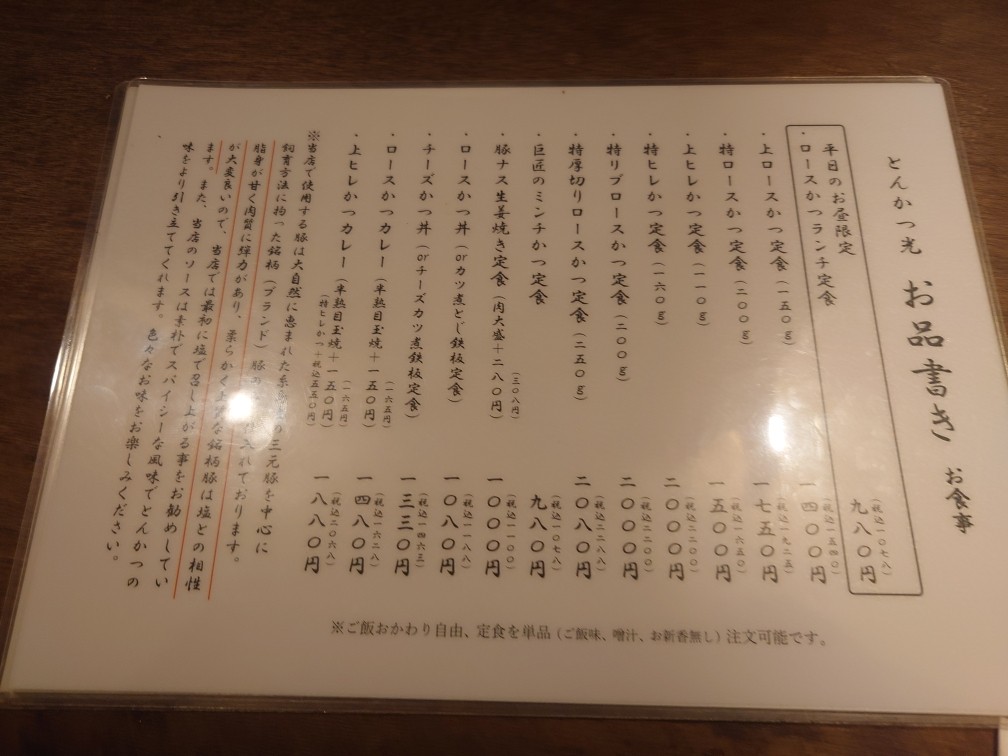 とんかつ光 お品書き お食事
平日のお昼限定
・ロースかつランチ定食 (税込一〇七八) 九八〇円
・上ロースかつ定食(一五〇g) (税込一五四〇) 一四〇〇円
・特ロースかつ定食(二〇〇g) (税込一九二五) 一七五〇円
・上ヒレかつ定食(一一〇g) (税込一六五〇) 一五〇〇円
・特ヒレかつ定食(一六〇g) (税込二二〇〇) 二〇〇〇円
・特リブロースかつ定食(二〇〇g) (税込二二〇〇) 二〇〇〇円
・特厚切りロースかつ定食(二五〇g) (税込二二八八) 二〇八〇円
・巨匠のミンチかつ定食 (税込一〇七八) 九八〇円
・豚ナス生姜焼き定食(肉大盛+二八〇円) (三〇八円) (税込一一〇〇) 一〇〇〇円
・ロースかつ丼(orカツ煮とじ鉄板定食) (税込一一八八) 一〇八〇円
・チーズかつ丼(orチーズカツ煮鉄板定食) (税込一四六三) 一三三〇円
・ロースかつカレー(半熟目玉焼+一五〇円) (一六五円) (税込一六二八) 一四八〇円
・上ヒレかつカレー(半熟目玉焼+一五〇円) (一六五円) (税込二〇六八) 一八八〇円
(特ヒレかつ+税込五五〇円)
※当店で使用する豚は大自然に恵まれた 三元豚を中心に
飼育方法に拘った銘柄(ブランド)豚 仕入れております。
脂身が甘く肉質に弾力があり、柔らかく上質な銘柄豚は塩との相性
が大変良いので、当店では最初に塩で召し上がる事をお勧めしてい
ます。また、当店のソースは素朴でスパイシーな風味でとんかつの
味をより引き立ててくれます。色々なお味をお楽しみください。
※ご飯おかわり自由、定食を単品(ご飯味、噌汁、お新香無し)注文可能です。